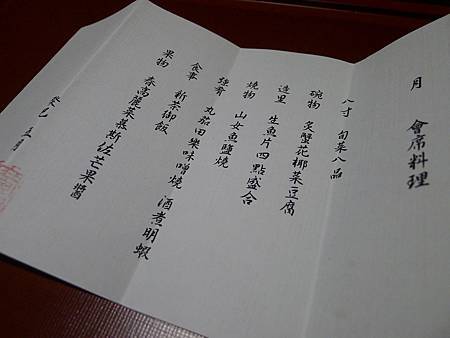 月 會席料理
八寸 旬菜八品
碗物 炙蟹花椰菜豆腐
造里 生魚片四點盛合
燒物 山女魚鹽燒
強肴 丸茄田樂味噌燒 酒煮明蝦
食事 新茶御飯
果物 春高麗菜慕斯佐芒果醬
癸巳 五月